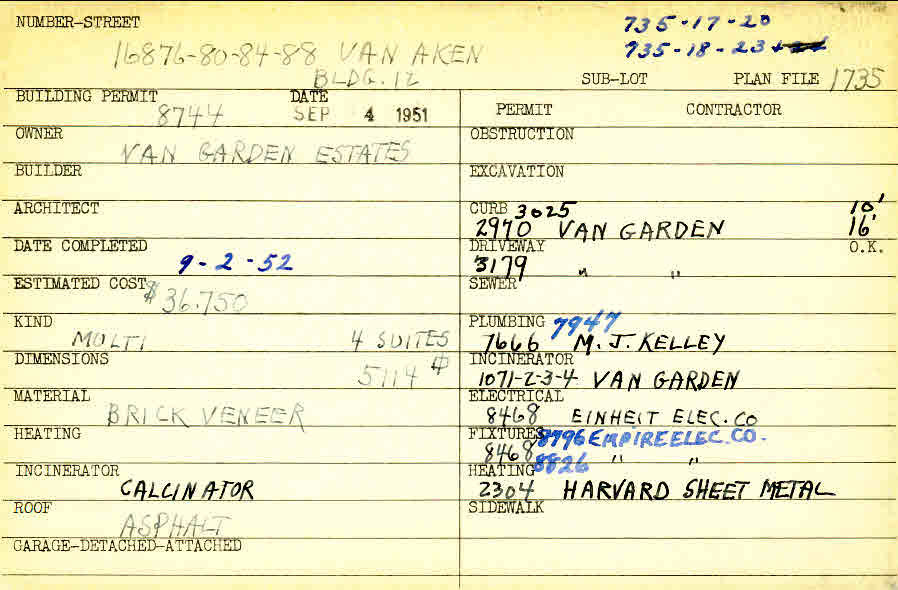 NUMBER-STREET 735-17-20
16876-80-84-88 VAN AKEN 735-18-23
BLDG. 12 SUB-LOT PLAN FILE 1735
BUILDING PERMIT DATE
8744 SEP 4 1951
PERMIT CONTRACTOR
OWNER
VAN GARDEN ESTATES
BUILDER
ARCHITECT
DATE COMPLETED
9-2-52
ESTIMATED COST
$36.750
KIND
MULTI 4 SUITES
DIMENSIONS
5114
MATERIAL
BRICK VENEER
HEATING
INCINERATOR
CALCINATOR
ROOF
ASPHALT
GARAGE-DETACHED-ATTACHED
OBSTRUCTION
EXCAVATION
CURB 3025 10'
2970 VAN GARDEN 16'
DRIVEWAY O.K.
3179 " "
SEWER
PLUMBING 7947
7666 M. J. KELLEY
INCINERATOR
1071-2-3-4 VAN GARDEN
ELECTRICAL
8468 EINHEIT ELEC. CO
FIXTURES 8796 EMPIRE ELEC. CO.
8468 " "
HEATING 8826
2304 HARVARD SHEET METAL
SIDEWALK